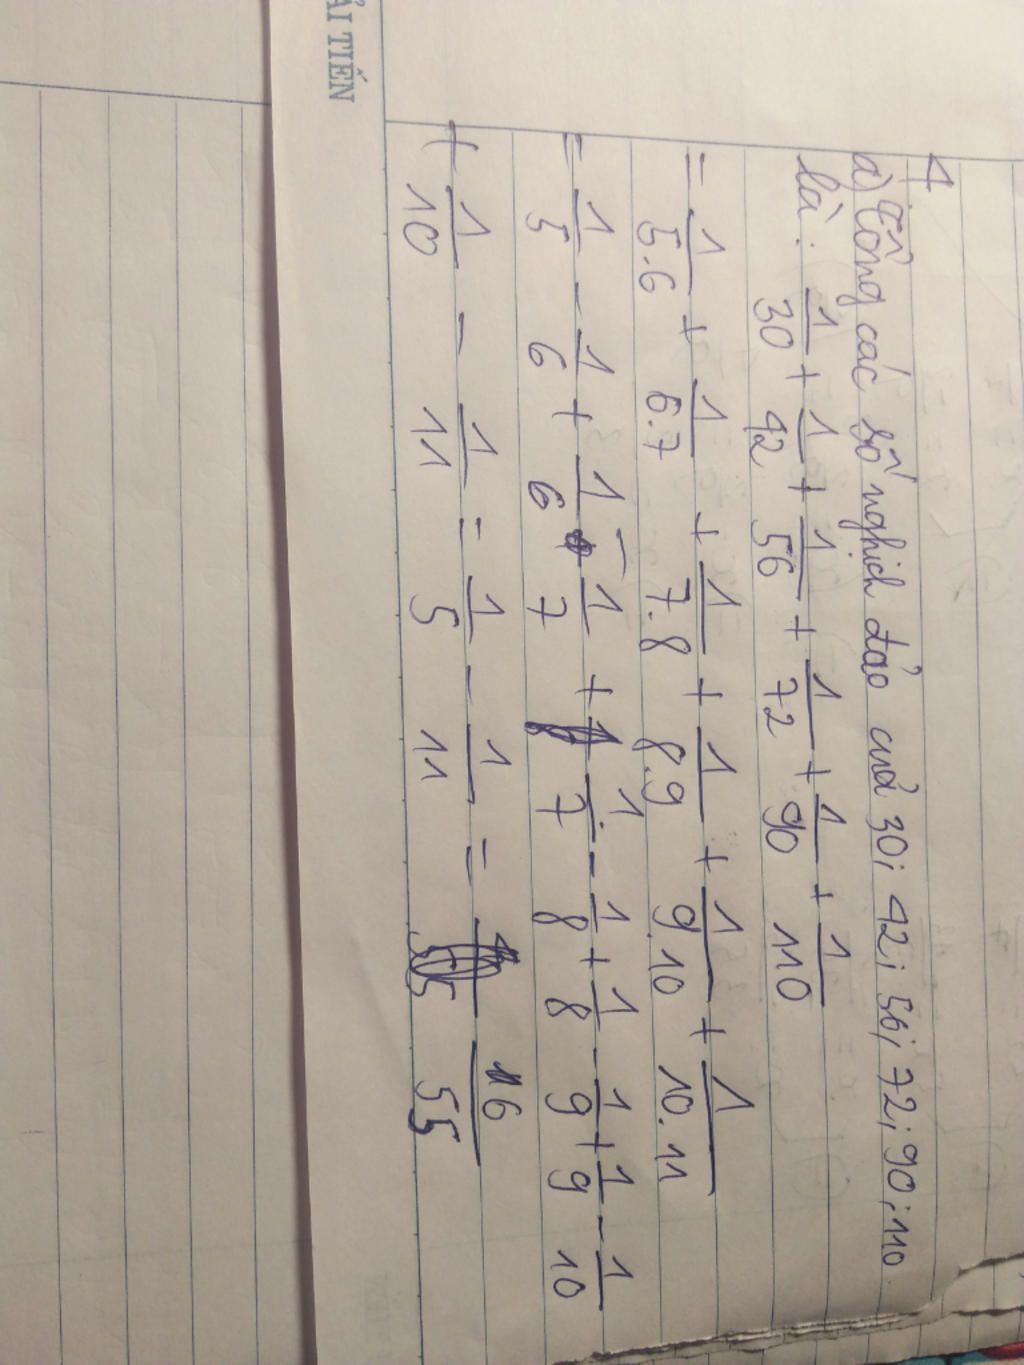 4
a) Tổng các số nghịch đảo cuả 30; 42; 56; 72; 90; 110
là: 1/30 + 1/42 + 1/56 + 1/72 + 1/90 + 1/110
= 1/5.6 + 1/6.7 + 1/7.8 + 1/8.9 + 1/9.10 + 1/10.11
= 1/5 - 1/6 + 1/6 - 1/7 + 1/7 - 1/8 + 1/8 - 1/9 + 1/9 - 1/10
+ 1/10 - 1/11 = 1/5 - 1/11 = 6/55
ẢI TIẾN